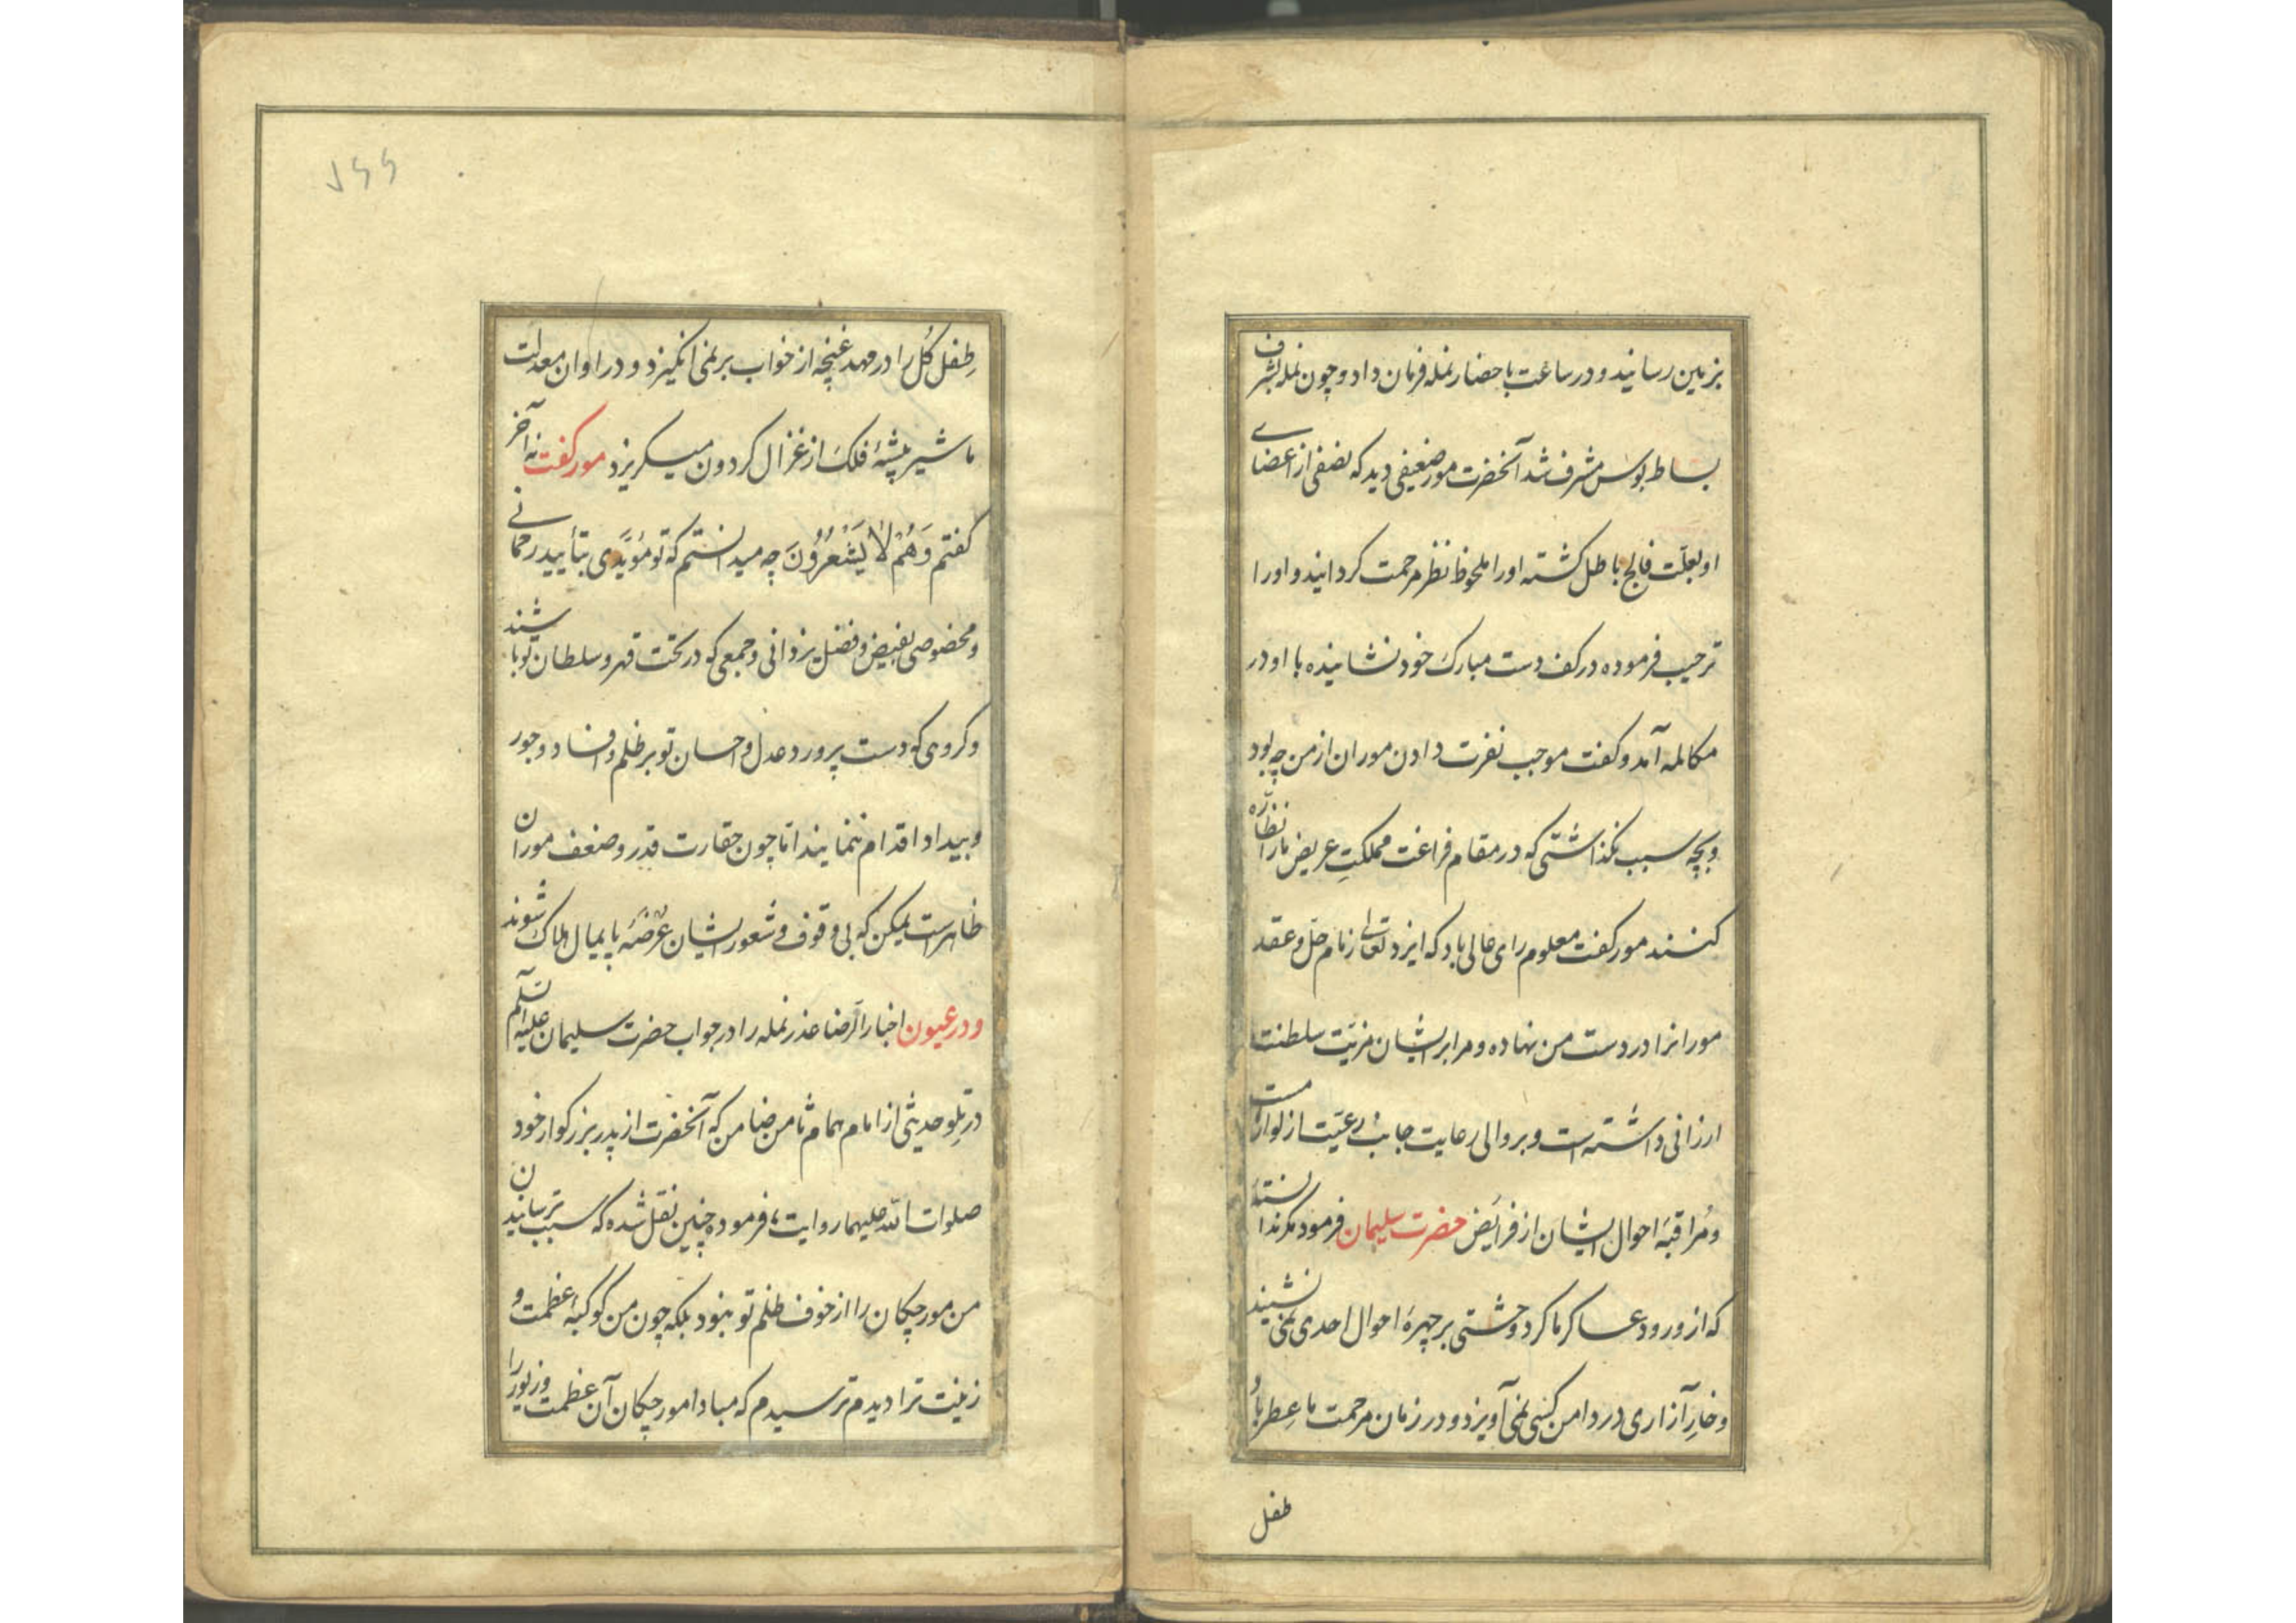 بزمین رسانید و در ساعت باحضار نمله فرمان داد و چون نمله بشرف
بساط بوس مشرف شد آنحضرت مور ضعیفی دید که نصفی از اعضای
او بعلّت فالج باطل کشته او را ملحوظ نظر مرحمت کردانید و او را
ترحیب فرموده در کف دست مبارک خود نشانیده با او در
مکالمه آمد و کفت موجب نفرت دادن موران از من چه بود
و بچه سبب نکذاشتی که در مقام فراغت مملکتِ عریض ما را نظاره
کنند مور کفت معلوم رای عالی باد که ایزد تعالی زمام حل و عقد
مورانرا در دست من نهاده و مرا بر ایشان مزیّت سلطنت
ارزانی داشته است و بر والی رعایت جانب رعیّت از لوازمست
و مُراقبهٔ احوال ایشان از فرائض حضرت سلیمان فرمود مکر ندانستهٔ
که از ورود عساکر ما کرد وحشتی بر چهرهٔ احوال احدی نمی نشیند
و خارِ آزاری در دامن کسی نمی آویزد و در زمان مرحمت ما عِطر باد
طفل
طِفل کُل را در مهد غنچه از خواب برنمی انکیزد و در اوان معدلت
ما شیر بیشهٔ فلک از غزال کردون میکریزد مور کفت نه آخر
کفتم وَهُمْ لَا یَشْعُرُونَ چه میدانستم که تو مؤیَّدی بتأیید رحمانی
و مخصوصی بفیض و فضل یزدانی و جمعی که در تحت قهر و سلطان تو باشند
و کروهی که دست پرورد عدل و احسان تو بر ظلم و فساد و جور
و بیداد اقدام ننمایند اما چون حقارت قدر و ضعف موران
ظاهرست یمکن که بی وقوف و شعور ایشان عرضهٔ پایمال هلاک شوند
و در عیون اخبار الرضا عذر نمله را در جواب حضرت سلیمان علیه السّلم
در تِلو حدیثی از امام همام ثامن ضامن که آنحضرت از پدر بزرکوار خود
صلوات الله علیهما روایت فرموده چنین نقل شده که سبب ترسانیدن
من مورچکان را از خوف ظلم تو نبود بلکه چون من کوکبهٔ عظمت و
زینت ترا دیدم ترسیدم که مبادا مورچکان آن عظمت و زیور را